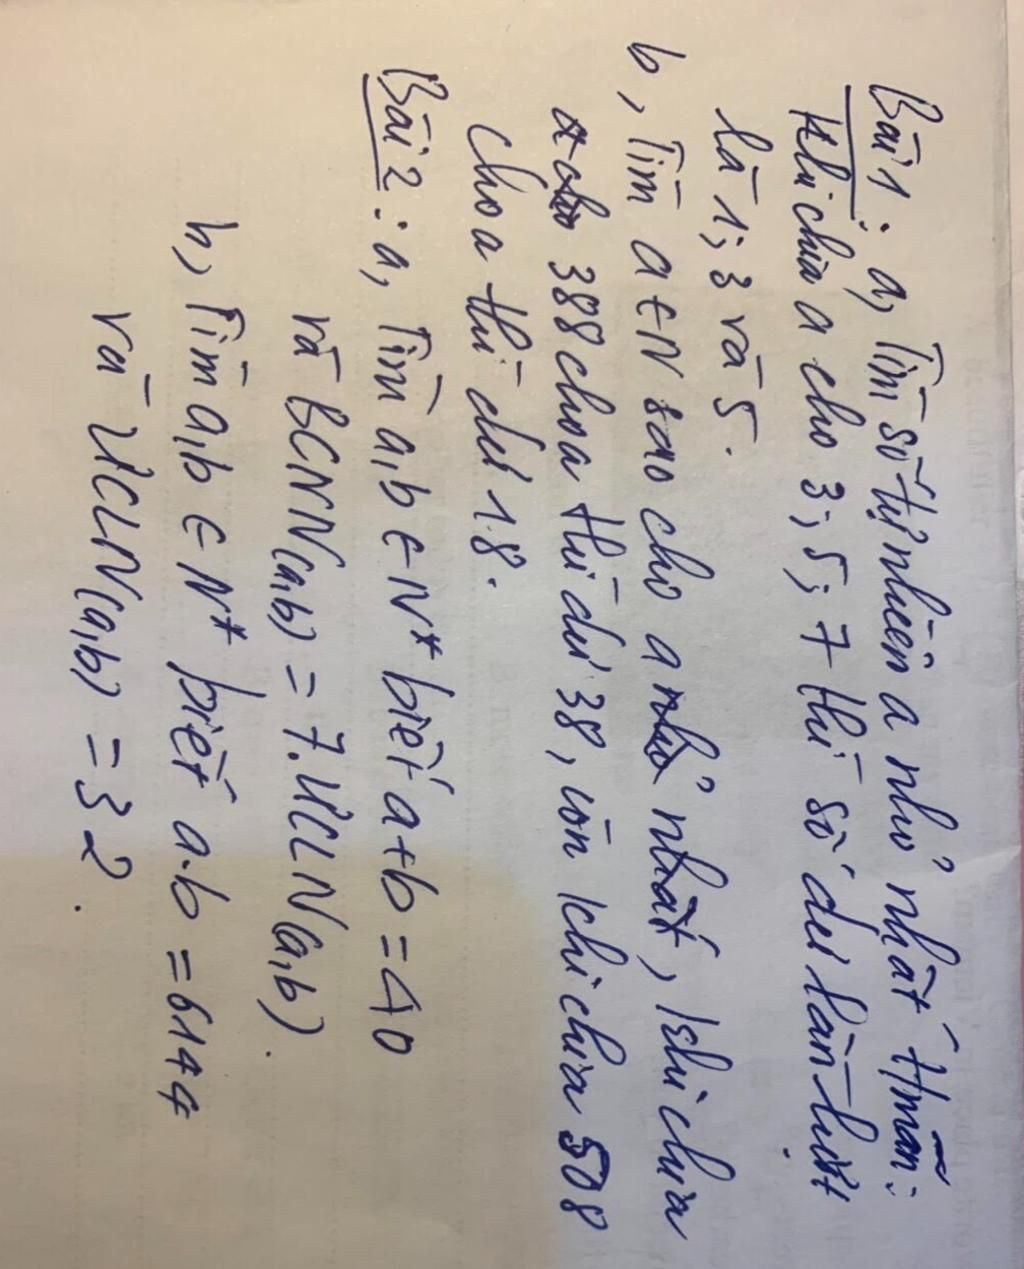 Bài 1: a, Tìm số tự nhiên a nhỏ nhất t/mãn:
Khi chia a cho 3; 5; 7 thì số dư lần lượt
là 1; 3 và 5.
b, Tìm a ∈ N sao cho a nhỏ nhất, khi chia
388 cho a thì dư 38, còn khi chia 508
cho a thì dư 18.
Bài 2: a, Tìm a,b ∈ N* biết a+b = 40
và BCNN(a,b) = 7.ƯCLN(a,b).
b, Tìm a,b ∈ N* biết a.b = 6144
và ƯCLN(a,b) = 32.